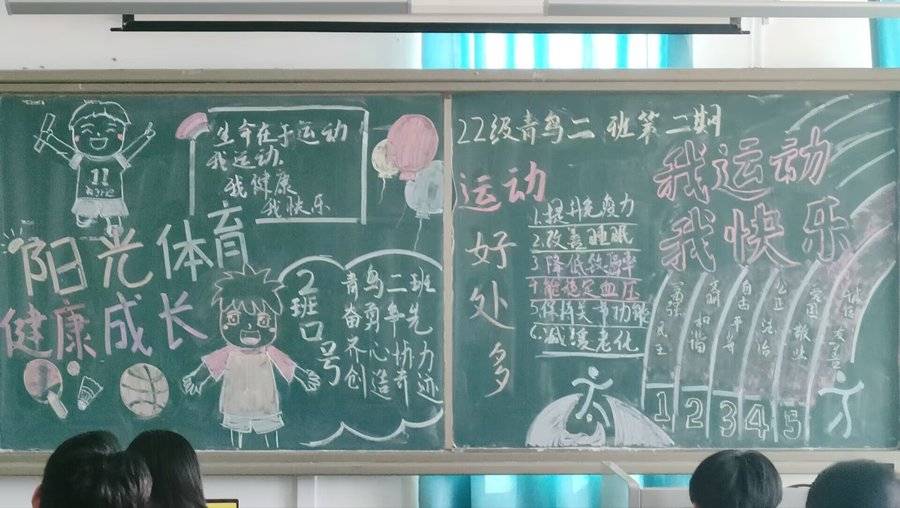 生命在于运动
我运动
我健康
我快乐
11
阳光体育
健康成长
2班口号
青鸟二班
奋勇争先
齐心协力
创造奇迹
22级青鸟二班第二期
运动
好处多
1.提升免疫力
2.改善睡眠
3.降低致癌率
4.能稳定血压
5.保持关节功能
6.减缓老化
我运动
我快乐
富强 民主
文明 和谐
自由 平等
公正 法治
爱国 敬业
诚信 友善
1 2 3 4 5